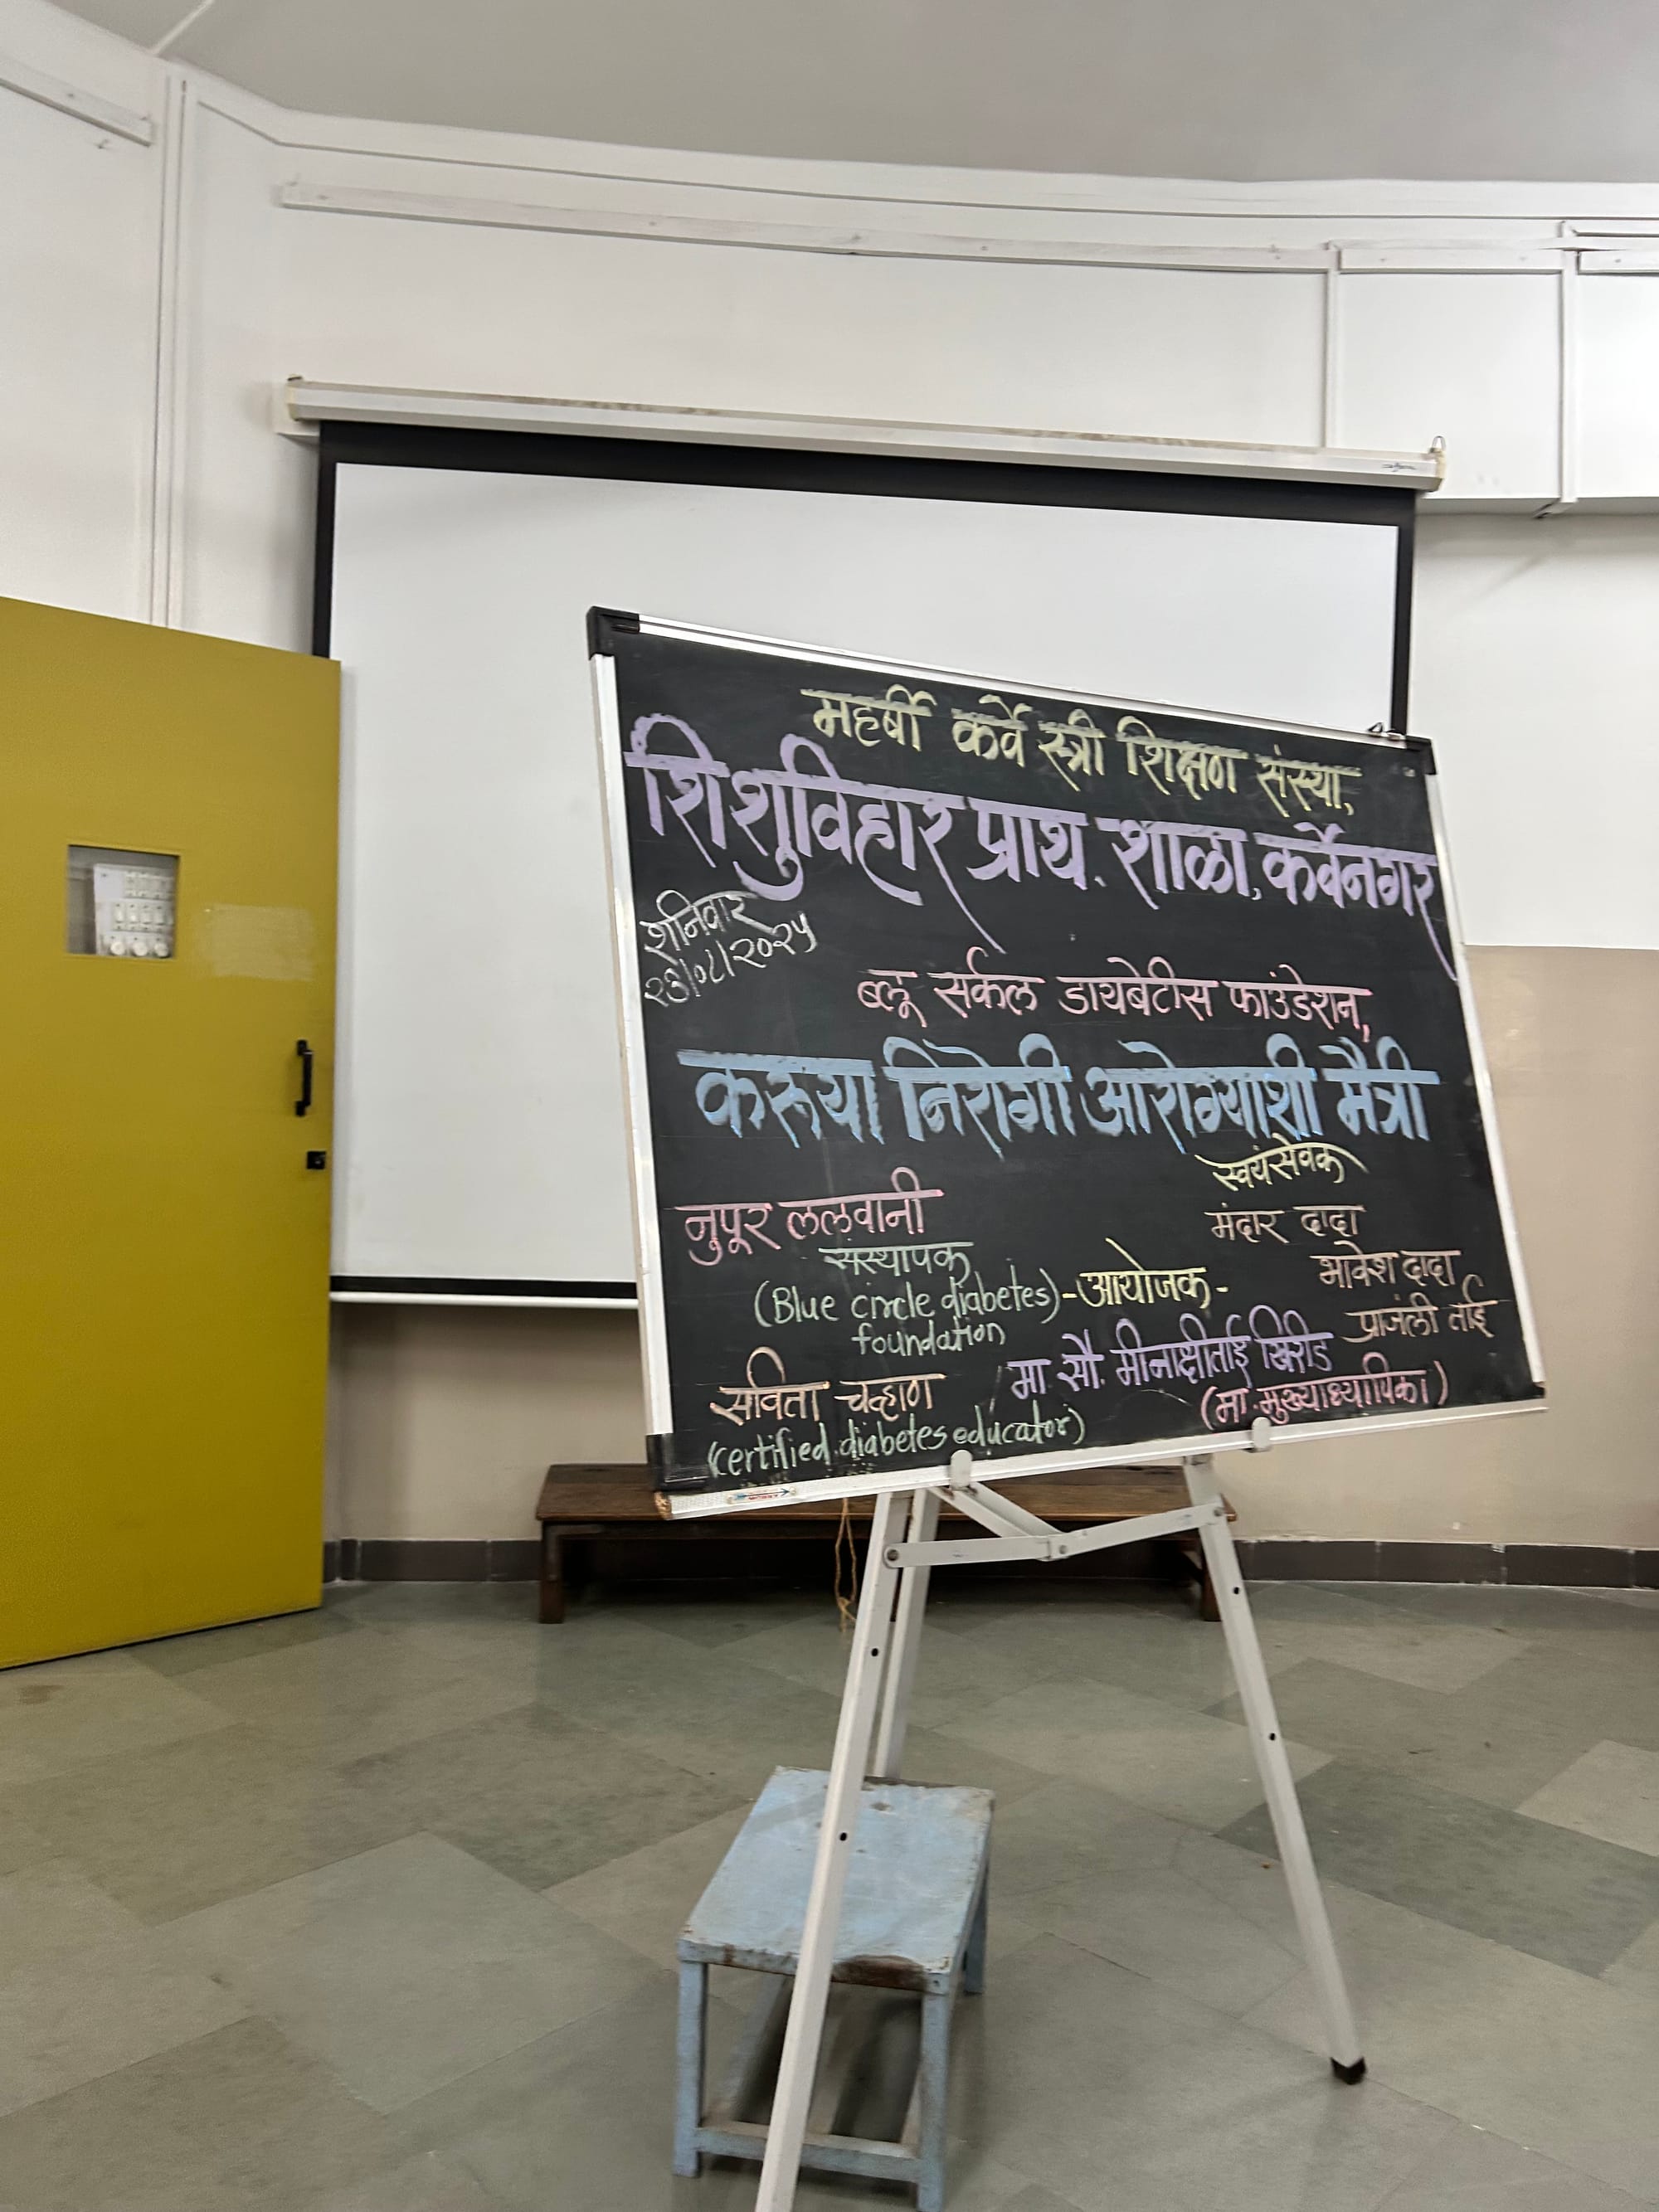 महर्षी कर्वे स्त्री शिक्षण संस्था,
शिशुविहार प्राथ. शाळा, कर्वेनगर
शनिवार
ब्लू सर्कल डायबेटीस फाउंडेशन,
करूया निरोगी आरोग्याशी मैत्री
नुपूर ललवानी
संस्थापक
(Blue circle diabetes)
foundation
सविता चव्हाण
(certified diabetes educator)
स्वयंसेवक
मंदार दादा
भावेश दादा
प्राजंली ताई
-आयोजक-
मा. सौ. मीनाक्षीताई खिरीड
(मा. मुख्याध्यापिका)